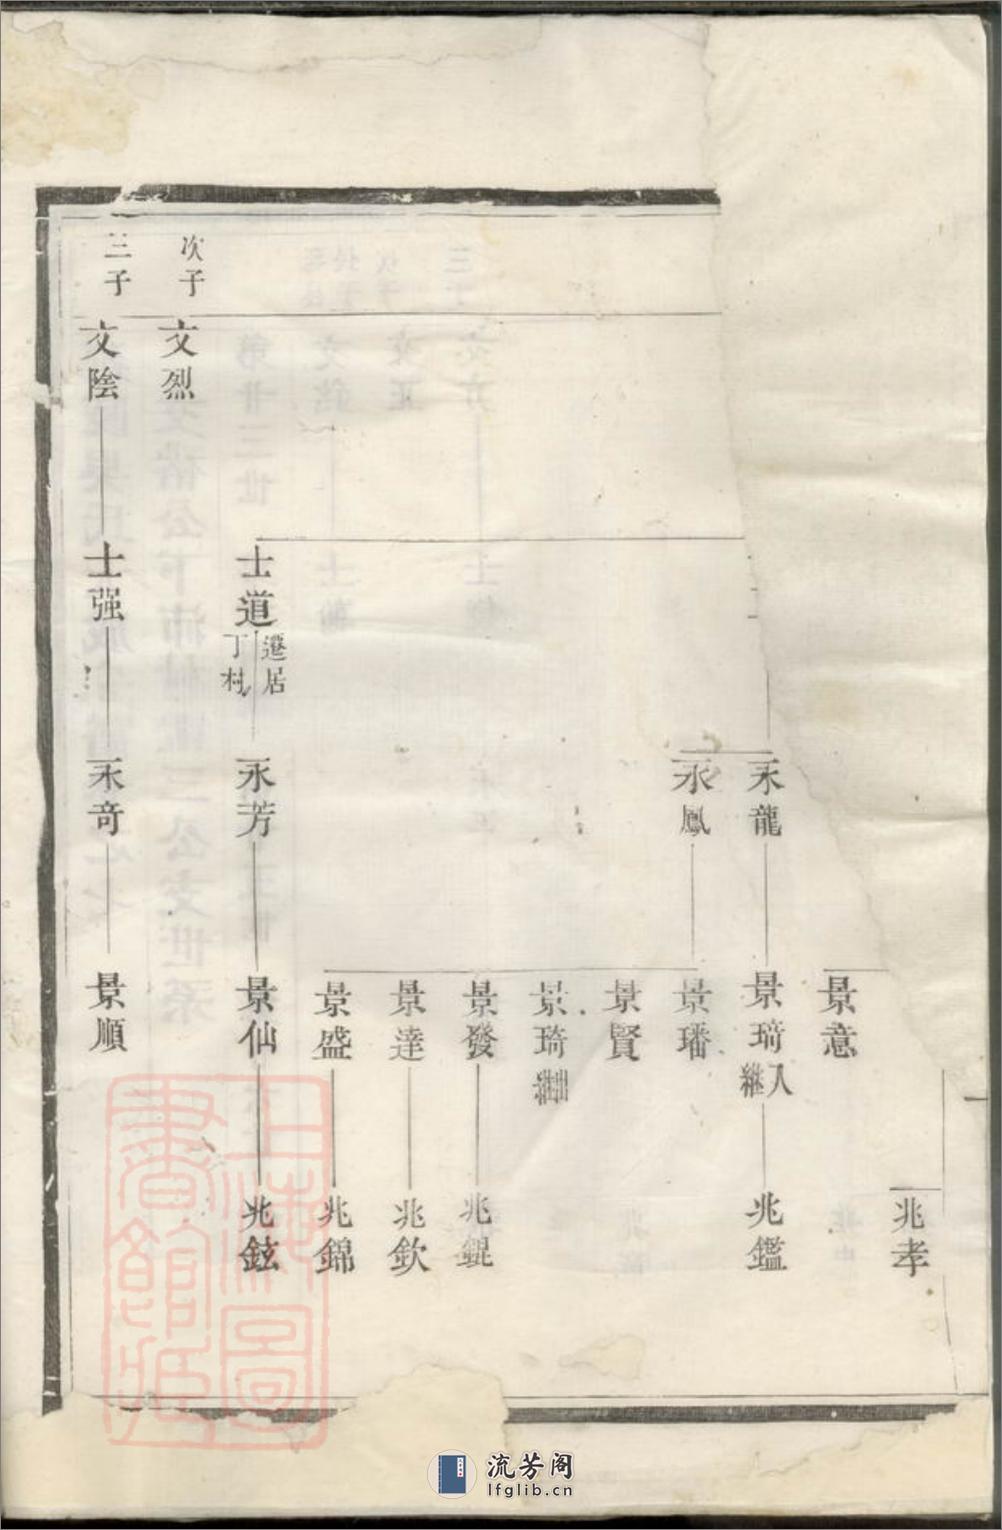 兆孝
景意
永龍
景琦
入
繼
兆鑑
永鳳
景璠
景賢
景琦
出繼
景發
兆錕
景達
兆欽
景盛
兆錦
士道
遷居
丁村
永芳
景仙
兆鉉
次子
文烈
三子
文陰
士强
永奇
景順
上海圖
書館藏
流芳阁
lfglib.cn